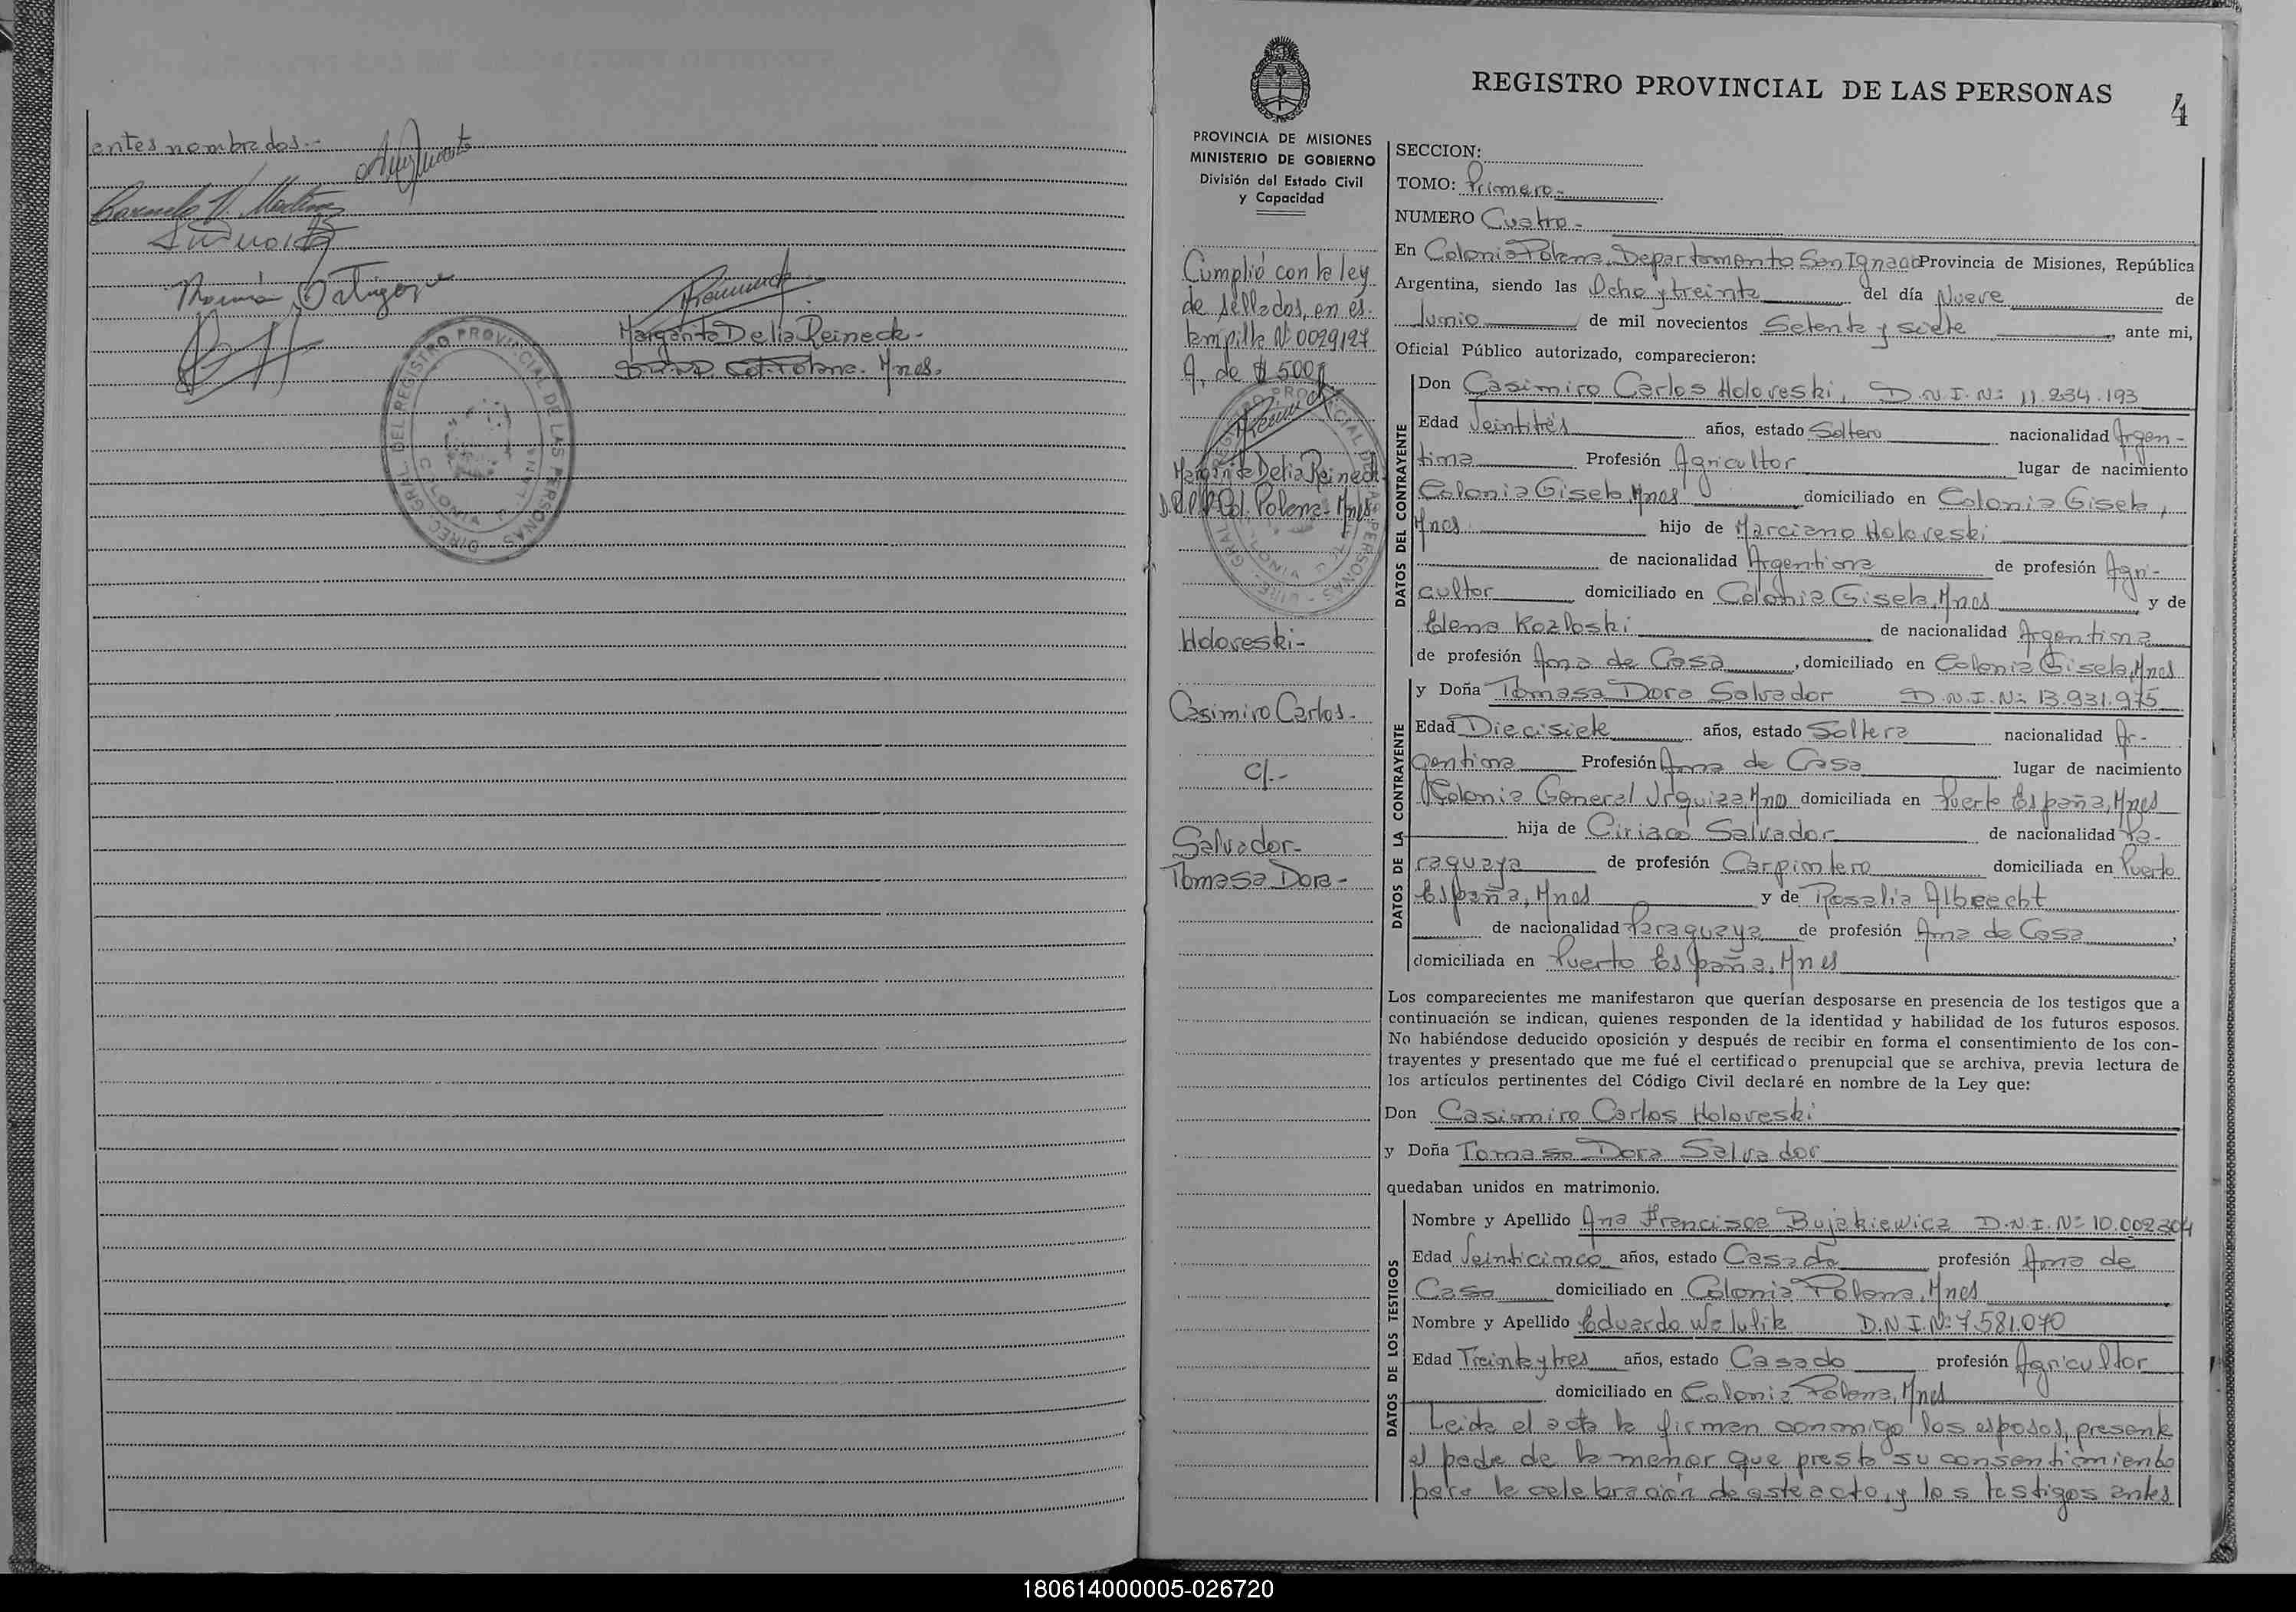 entes nombrados.-
Carmelo V. Martinez
Margarita Delia Reineck.
D.R.P.P. Col. Polana. Mnes.
DIREC. GRAL. DEL REGISTRO PROVINCIAL DE LAS PERSONAS
COLONIA
PROVINCIA DE MISIONES
MINISTERIO DE GOBIERNO
División del Estado Civil
y Capacidad
Cumplió con la ley
de sellados, en es-
tampilla Nº 0029127
A, de $ 500
Margarita Delia Reineck
D.R.P.P. Col. Polana. Mnes
Holoveski-
Casimiro Carlos-
c/.-
Salvador-
Tomasa Dora-
REGISTRO PROVINCIAL DE LAS PERSONAS
4
SECCION:
TOMO: Primero-
NUMERO Cuatro-
En Colonia Polana, Departamento San Ignacio Provincia de Misiones, República
Argentina, siendo las Ocho y treinta del día Nueve de
Junio de mil novecientos Setenta y siete, ante mi,
Oficial Público autorizado, comparecieron:
DATOS DEL CONTRAYENTE
Don Casimiro Carlos Holoveski, D.N.I. Nº 11.234.193
Edad Veintitrés años, estado Soltero nacionalidad Argen-
tina Profesión Agricultor lugar de nacimiento
Colonia Gisela Mnes domiciliado en Colonia Gisela,
Mnes hijo de Marciano Holoveski
de nacionalidad Argentina de profesión Agri-
cultor domiciliado en Colonia Gisela, Mnes y de
Elena Kozloski de nacionalidad Argentina
de profesión Ama de Casa, domiciliado en Colonia Gisela, Mnes
DATOS DE LA CONTRAYENTE
y Doña Tomasa Dora Salvador D.N.I. Nº 13.931.975
Edad Diecisiete años, estado Soltera nacionalidad Ar-
gentina Profesión Ama de Casa lugar de nacimiento
Colonia General Urquiza Mnes domiciliada en Puerto España, Mnes
hija de Ciriaco Salvador de nacionalidad Pa-
raguaya de profesión Carpintero domiciliada en Puerto
España, Mnes y de Rosalia Albrecht
de nacionalidad Paraguaya de profesión Ama de Casa,
domiciliada en Puerto España, Mnes
Los comparecientes me manifestaron que querían desposarse en presencia de los testigos que a
continuación se indican, quienes responden de la identidad y habilidad de los futuros esposos.
No habiéndose deducido oposición y después de recibir en forma el consentimiento de los con-
trayentes y presentado que me fué el certificado prenupcial que se archiva, previa lectura de
los artículos pertinentes del Código Civil declaré en nombre de la Ley que:
Don Casimiro Carlos Holoveski
y Doña Tomasa Dora Salvador
quedaban unidos en matrimonio.
DATOS DE LOS TESTIGOS
Nombre y Apellido Ana Francisca Bujakiewicz D.N.I. Nº 10.002304
Edad Veinticinco años, estado Casada profesión Ama de
Casa domiciliado en Colonia Polana, Mnes
Nombre y Apellido Eduardo Walulik D.N.I. Nº 7.581.070
Edad Treinta y tres años, estado Casado profesión Agricultor
domiciliado en Colonia Polana, Mnes
Leida el acta la firman conmigo los esposos, presente
el padre de la menor que presta su consentimiento
para la celebración de este acto, y los testigos antes
180614000005-026720